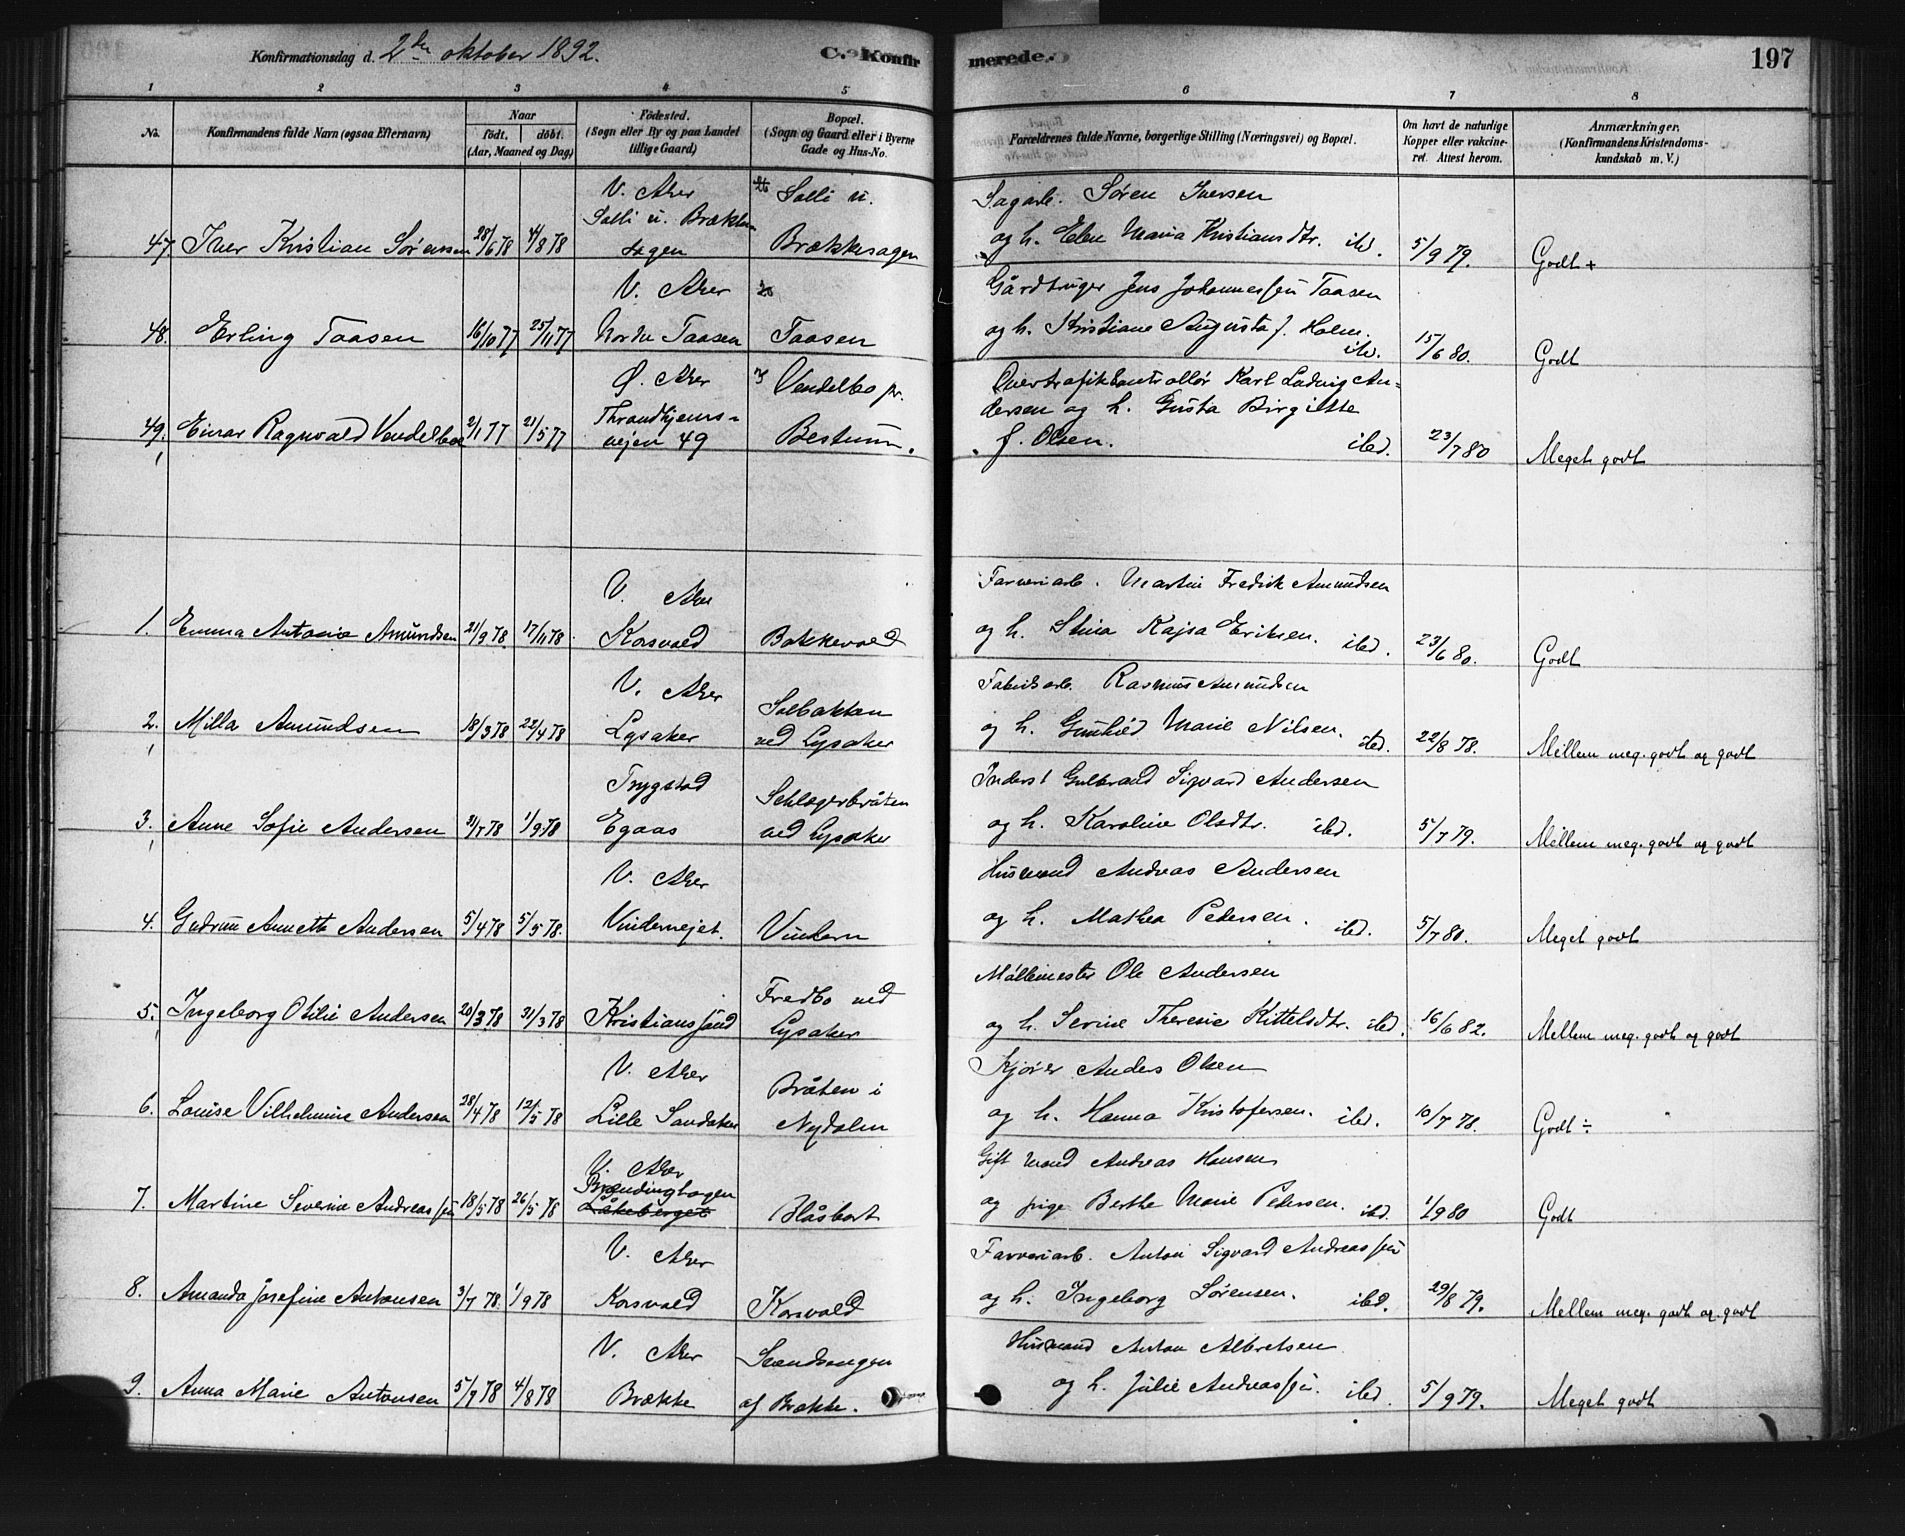 Konfirmationsdag d. 2den oktober 1892.
C. Konfirmerede.
197
1 2 3 4 5 6 7 8
No.
Konfirmandens fulde Navn (ogsaa Efternavn)
Naar
født. døbt.
(Aar, Maaned og Dag)
Fødested.
(Sogn eller By og paa Landet
tillige Gaard)
Bopæl.
(Sogn og Gaard eller i Byerne
Gade og Hus-No.
Forældrenes fulde Navne, borgerlige Stilling (Næringsvei) og Bopæl.
Om havt de naturlige
Kopper eller vakcine-
ret. Attest herom.
Anmærkninger.
(Konfirmandens Kristendoms-
kundskab m. V.)
V. Aker Solli u. Sagarb. Søren Iversen
Solli u. Brække
47. Iver Kristian Sørensen 28/6 78 4/8 78 sagen Brækkesagen og h. Elen Maria Kristiansdtr. ibd. 5/9 79. Godt +
V. Aker Gårdbruger Jens Johannessen Taasen
48. Erling Taasen 16/10 77 25/11 77 Nordre Taasen Taasen og h. Kristiane Augusta f. Holm. ibd. 15/6 80. Godt
Ø. Aker Vendelbo pr. Overtrafikkontrollør Karl Ludvig An-
Throndhjems- dersen og h. Gusta Birgitte
49. Einar Ragnvald Vendelboe 2/1 77 21/5 77 vejen 49 Bestum. f. Olsen. ibd. 23/7 80 Meget godt
V. Aker Farveriarb. Martin Fredrik Amundsen
1. Emma Antonie Amundsen 21/9 78. 17/11 78. Korsvold Bakkevold og h. Stina Kajsa Eriksen. ibd. 23/6 80. Godt
V. Aker Solbakken Fabrikarb. Rasmus Amundsen
2. Milla Amundsen 18/3 78 22/4 78 Lysaker ved Lysaker og h. Gunhild Marie Nilsen. ibd. 22/8 78. Mellem meg. godt og godt
Trygstad Schlagerbråten Inderst Gulbrand Sigvard Andersen
3. Anne Sofie Andersen 31/7 78 1/9 78 Egaas ved Lysaker og h. Karoline Olsdtr. ibd. 5/7 79. Mellem meg. godt og godt
V. Aker Husmand Andreas Andersen
4. Gudrun Annette Andersen 5/4 78 5/5 78. Vindernejet. Vindern og h. Mathea Pedersen. ibd. 5/7 80. Meget godt
Fredbo ved Møllemester Ole Andersen
5. Ingeborg Otilie Andersen 20/3 78 31/3 78 Kristianssand Lysaker og h. Serine Theresie Kittelsdtr. ibd. 16/6 82. Mellem meg. godt og godt
V. Aker Bråten i Kjører Anders Olsen
6. Louise Vilhelmine Andersen 28/4 78 12/5 78 Lille Sandaker Nydalen og h. Hanna Kristofersen. ibd. 10/7 78. Godt ÷
V. Aker Gift mand Andreas Hansen
Brændinghagen
7. Martine Severine Andreassen 18/5 78 26/5 78 Låkeberget Blåsbort og pige Berthe Marie Pedersen. ibd. 1/9 80 Godt
V. Aker Farveriarb. Anton Sigvard Andreassen
8. Amanda Josefine Antonsen 3/7 78. 1/9 78 Korsvold Korsvold og h. Ingeborg Sørensen. ibd. 29/8 79. Mellem meg. godt og godt
V. Aker Strandsengen Husmand Anton Albretsen
9. Anna Marie Antonsen 5/7 78 4/8 78 Brække af Brække. og h. Julie Andreassen. ibd. 5/9 79. Meget godt